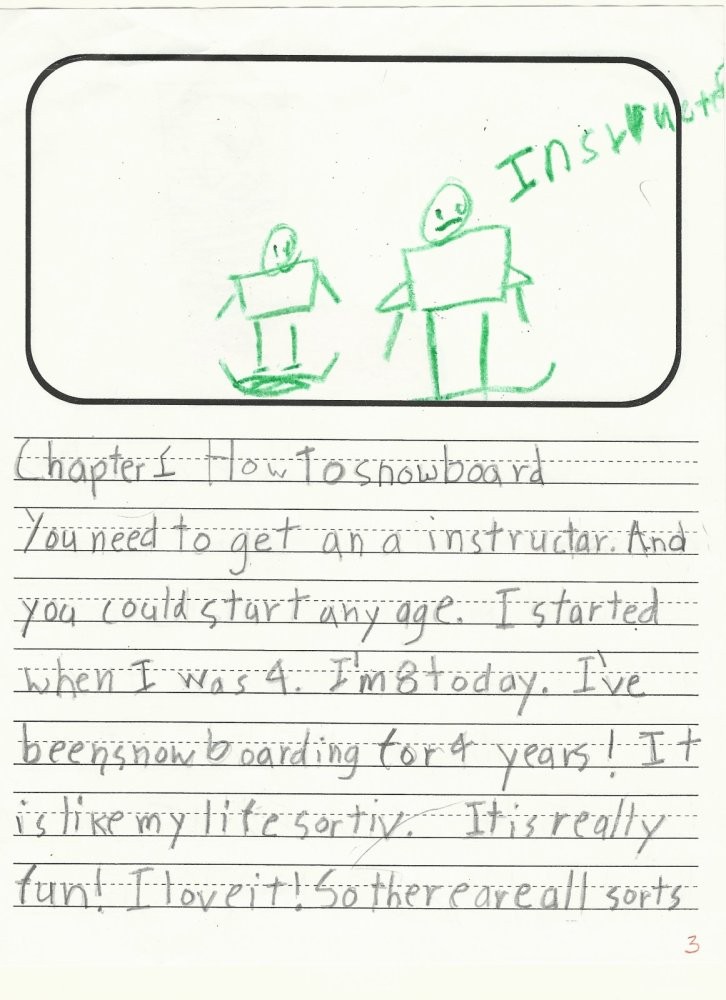 Instruct
Chapter 1 How To snowboard
You need to get an a instructar. And
you could start any age. I started
when I was 4. I'm 8 today. I've
been snowboarding for 4 years! It
is like my life sortiv. It is really
fun! I love it! So there are all sorts
3